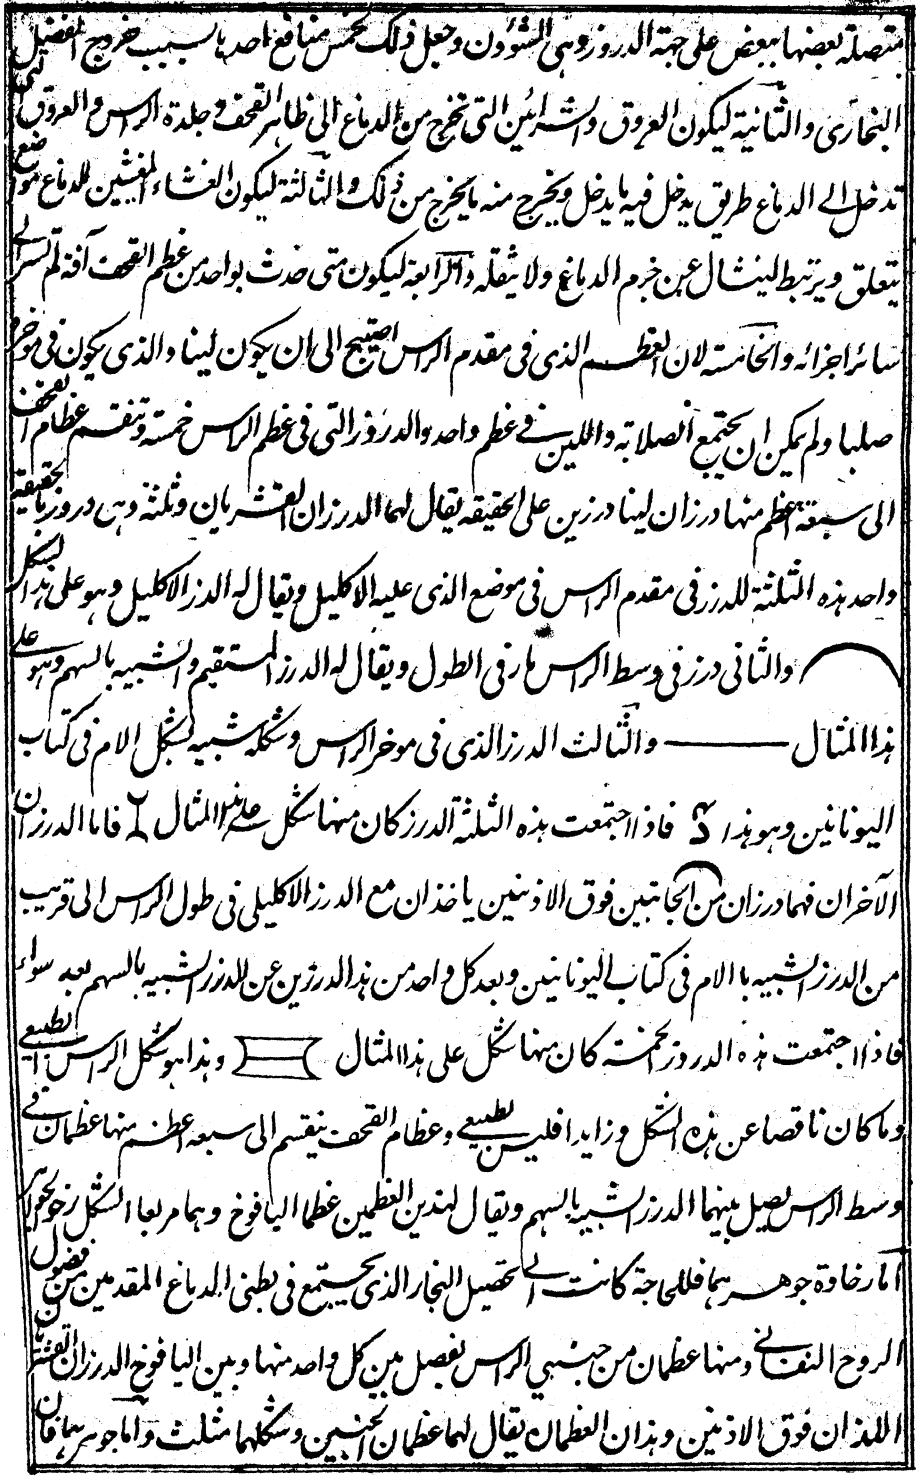 متصلة بعضها ببعض على جهة الدروز وهى الشؤون وجعل ذلك لخمس منافع احدها بسبب خروج الفضيل
البخارى والثانية ليكون العروق والشرائين التى تخرج من الدماغ الى ظاهر القحف وجلدة الراس والعروق التى
تدخل الى الدماغ طريق يدخل فيه ما يدخل ويخرج منه ما يخرج من ذلك والثالثة ليكون الغشاء المغشين للدماغ مواضع
يتعلق ويرتبط لينشال عن جرم الدماغ ولا يثقله والرابعة ليكون متى حدث بواحد من عظم القحف آفة لم تسر الى
سائر اجزائه والخامسة لان العظم الذى فى مقدم الراس احتيج الى ان يكون لينا والذى يكون فى موخره
صلبا ولم يمكن ان يجتمع الصلابة واللين فى عظم واحد والدروز التى فى عظم الراس خمسة وتنقسم عظام القحف
الى سبعة اعظم منها درزان لينا درزين على الحقيقة يقال لهما الدرزان القشريان وثلثة وهى دروز بالحقيقة
واحد هذه الثلثة للدرز فى مقدم الراس فى موضع الذى عليه الاكليل ويقال له الدرز الاكليل وهو على هذا الشكل
والثانى درز فى وسط الراس مار فى الطول ويقال له الدرز المستقيم والشبيه بالسهم وهو على
هذا المثال والثالث الدرز الذى فى موخر الراس وشكله شبيه بشكل الام فى كتاب
اليونانين وهو هذا فاذا اجتمعت هذه الثلثة الدرز كان منها شكل على هذا المثال فاما الدرزان
الآخران فهما درزان من الجانبين فوق الاذنين ياخذان مع الدرز الاكليلى فى طول الراس الى قريب
من الدرز الشبيه بالام فى كتاب اليونانين وبعد كل واحد من هذا الدرزين عن للدرز الشبيه بالسهم بعد سواء
فاذا اجتمعت هذه الدروز الخمسة كان منها شكل على هذا المثال وهذا هو شكل الراس الطبيعى
وما كان ناقصا عن هذه الشكل وزايدا فليس بطبيعى وعظام القحف ينقسم الى سبعه اعظم منها عظمان فى
وسط الراس يصل بينهما الدرز الشبيه بالسهم ويقال لهذين العظمين عظما اليافوخ وهما مربعا الشكل رخوا الجوهر
اما رخاوة جوهرهما فللحاجة كانت الى تحصيل البخار الذى يجتمع فى بطنى الدماغ المقدمين من فضول
الروح النفسانى ومنها عظمان من جنبى الراس يفصل بين كل واحد منها وبين اليافوخ الدرزان القشريان
اللذان فوق الاذنين وهذان العظمان يقال لهما عظمان الجنبين وشكلهما مثلث واما جوهرهما فان